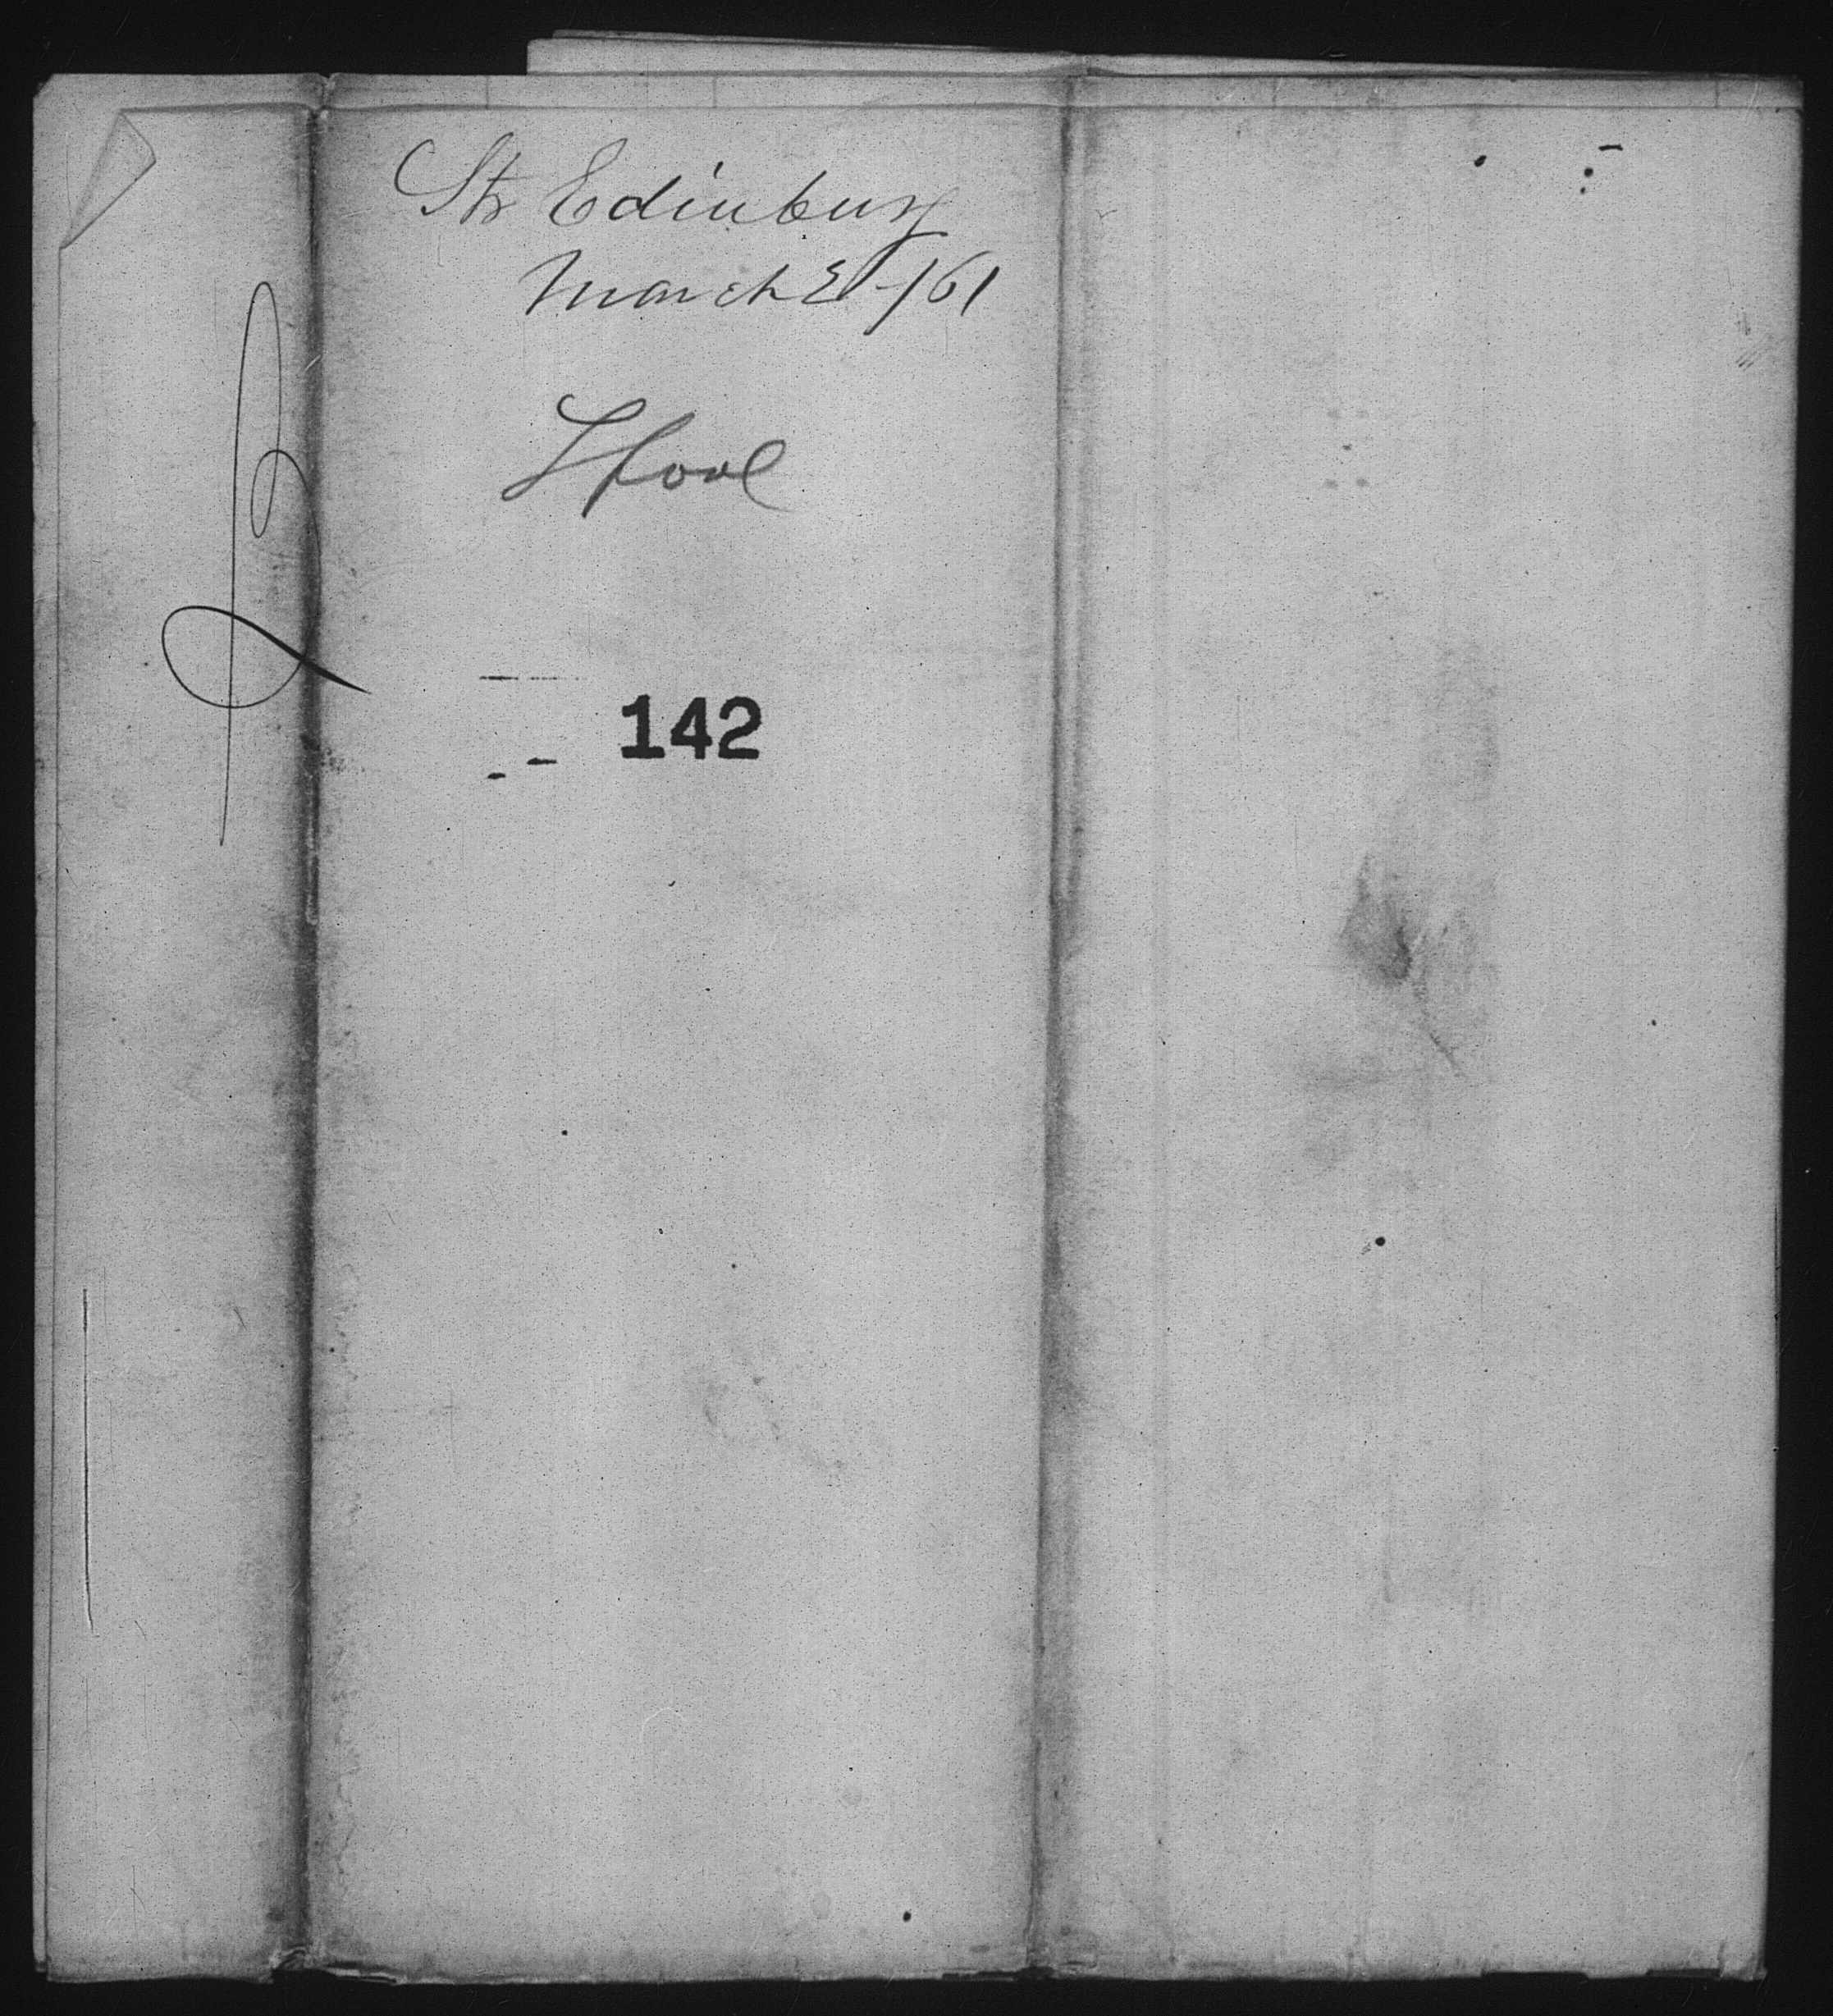 Str Edinburg
March 21/61
Lpool
142